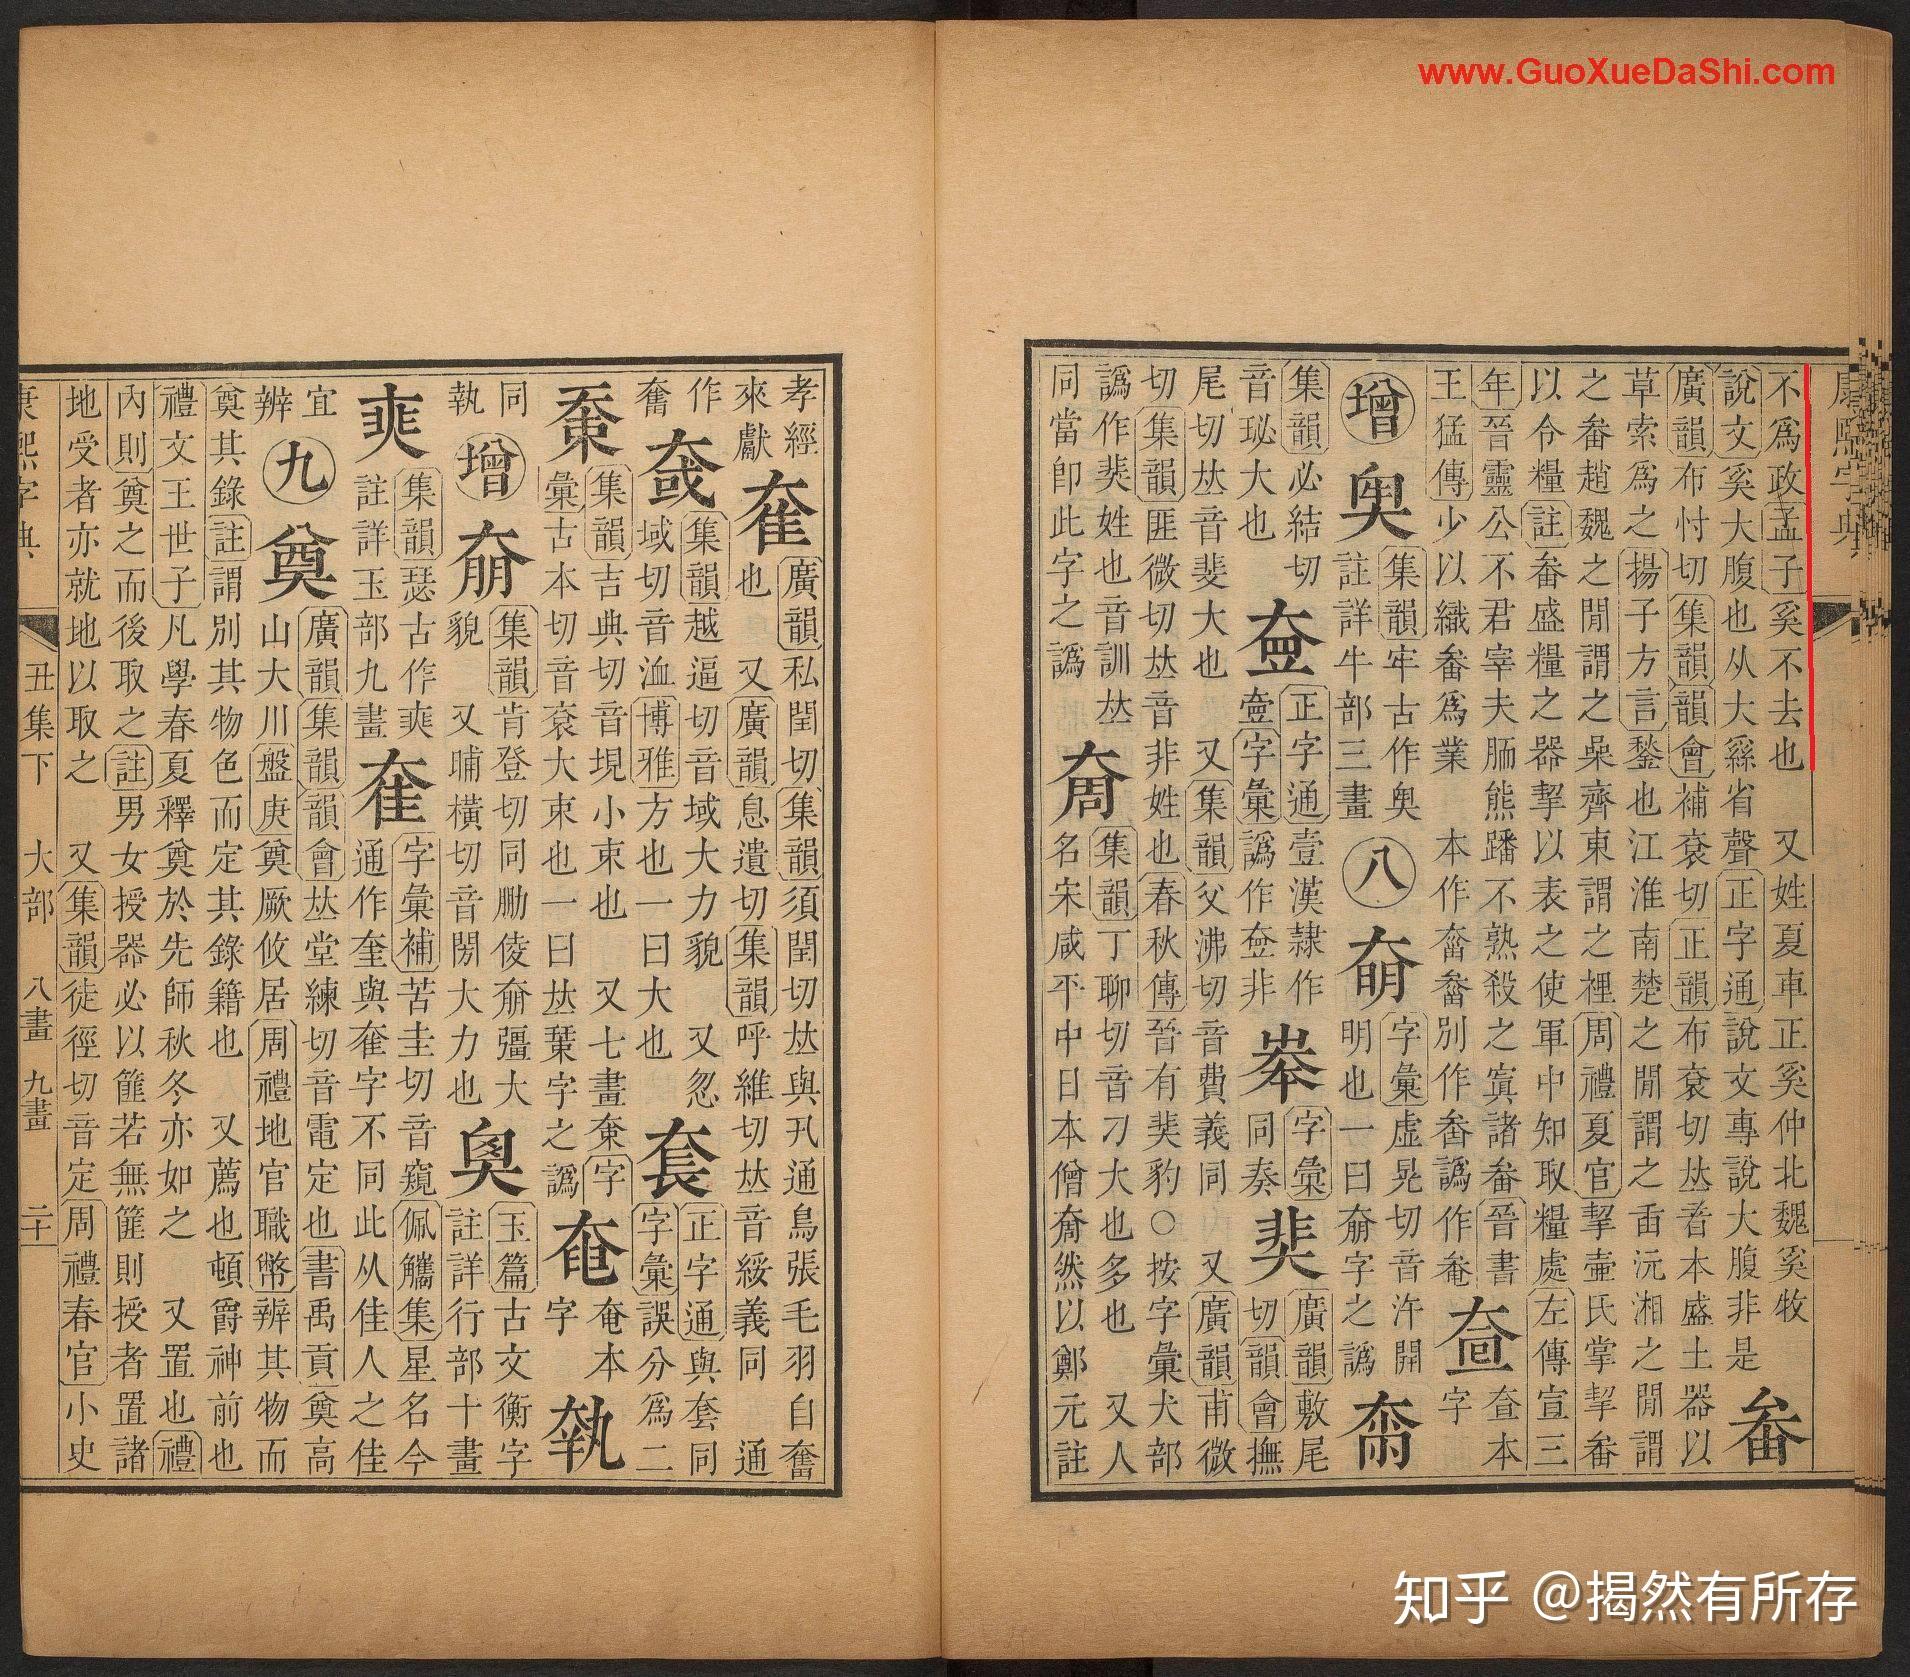 www.GuoXueDaShi.com
康熙字典
不爲政孟子奚不去也 又姓夏車正奚仲北魏奚牧
說文奚大腹也从大𦃟省聲正字通說文專說大腹非是 畚
廣韻布忖切集韻韻會補衮切正韻布衮切𠀤音本盛土器以
草索爲之揚子方言鍫也江淮南楚之閒謂之臿沅湘之閒謂
之畚趙魏之閒謂之喿齊東謂之裡周禮夏官挈壷氏掌挈畚
以令糧註畚盛糧之器挈以表之使軍中知取糧處左傳宣三
年晉靈公不君宰夫胹熊蹯不熟殺之寘諸畚晉書 查本
王猛傳少以織畚爲業 本作奮𤲖別作畨譌作𤱿 㚃 字
增 㚑 集韻牢古作㚑 註詳牛部三畫 八 奣 字彙虛晃切音汻開 明也一曰奟字之譌 㚡
集韻必結切 音珌大也 㚃 正字通壹漢隸作 壷字彙譌作㚃非 㚏 字彙 同奏 奜 廣韻敷尾 切韻會撫
尾切𠀤音斐大也 又集韻父沸切音費義同 又廣韻甫微
切集韻匪微切𠀤音非姓也春秋傳晉有奜豹○按字彙犬部
譌作猆姓也音訓𠀤 奝 集韻丁聊切音刁大也多也 又人
同當卽此字之譌 名宋咸平中日本僧奝然以鄭元註
孝經 來獻 奞 廣韻私閏切集韻須閏切𠀤與卂通鳥張毛羽自奮
也 又廣韻息遺切集韻呼維切𠀤音綏義同 通
作 奮 㚜 集韻越逼切音域大力貌 又忽 域切音洫博雅方也一曰大也 套 正字通與套同 字彙誤分爲二
㯻 集韻吉典切音垷小束也 又七畫㯻字 彙古本切音衮大束也一曰𠀤葉字之譌 奄 奄本 字 執
同 執 增 奟 集韻肯登切同勆倰奟彊大 貌 又晡橫切音閍大力也 奧 玉篇古文衡字 註詳行部十畫
奭 集韻瑟古作奭 註詳玉部九畫 奞 字彙補苦圭切音窺佩觿集星名今 通作奎與奞字不同此从佳人之佳
宜 辨 九 奠 廣韻集韻韻會𠀤堂練切音電定也書禹貢奠高 山大川盤庚奠厥攸居周禮地官職幣辨其物而
奠其錄註謂別其物色而定其錄籍也 又薦也頓爵神前也
禮文王世子凡學春夏釋奠於先師秋冬亦如之 又置也禮
內則奠之而後取之註男女授器必以篚若無篚則授者置諸
地受者亦就地以取之 又集韻徒徑切音定周禮春官小史
康熙字典 丑集下 大部 八畫 九畫 二十
知乎 @揭然有所存